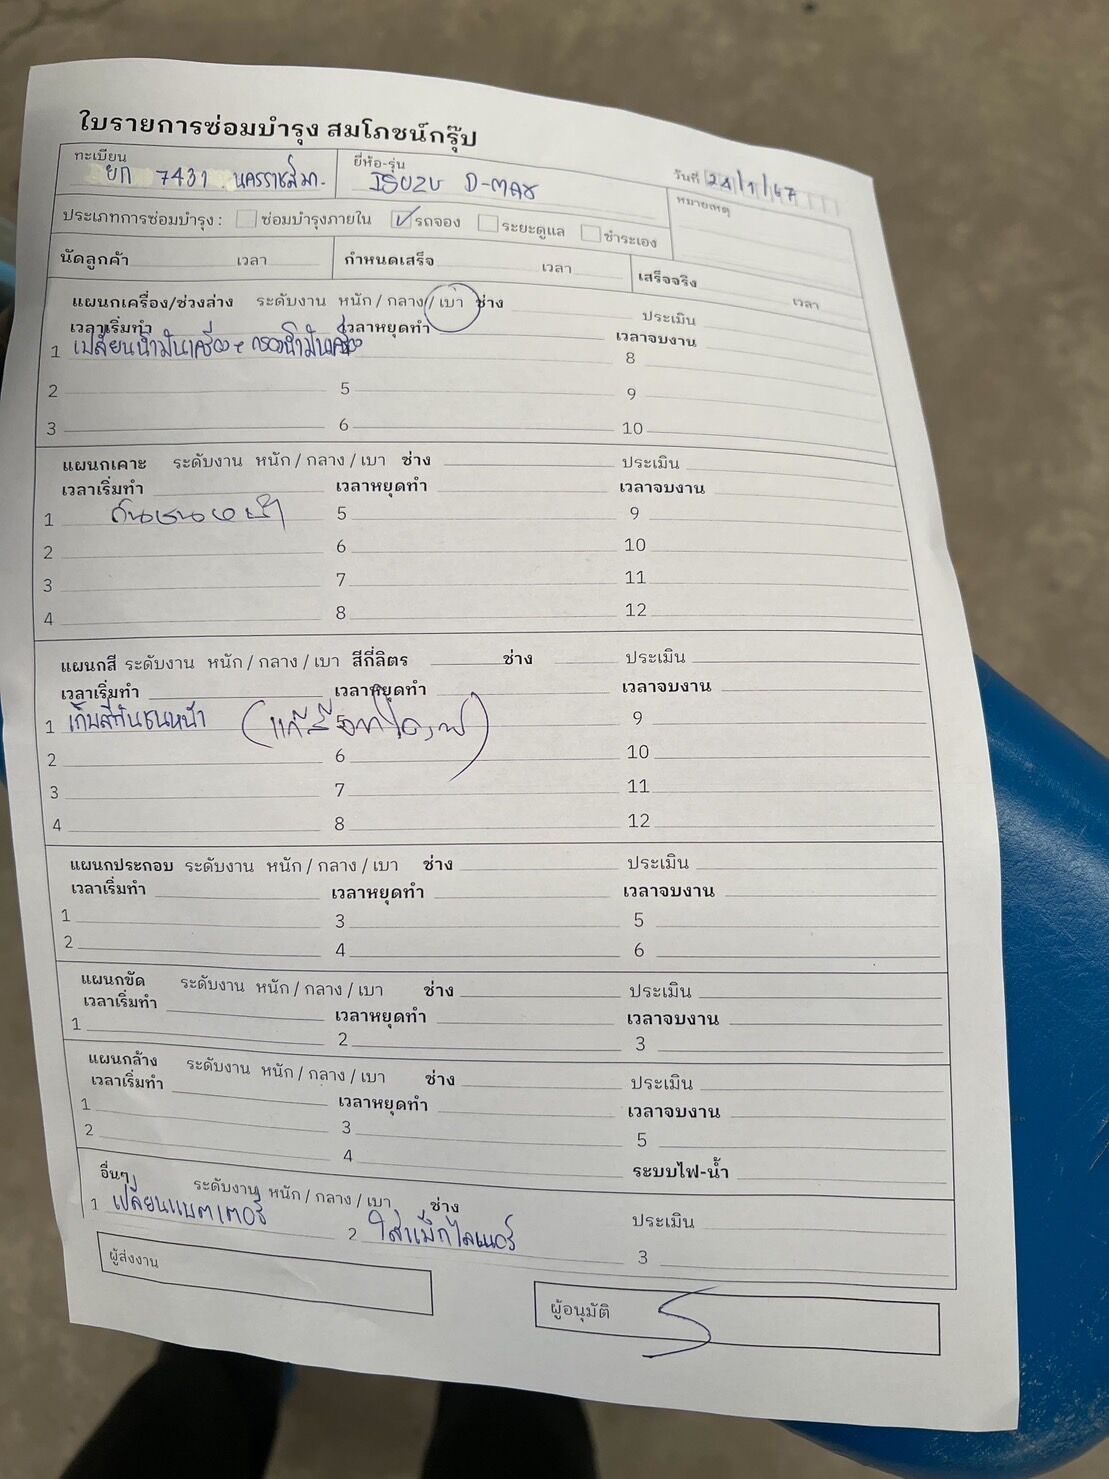 ใบรายการซ่อมบำรุง สมโภชน์กรุ๊ป
ทะเบียน ยก 7431 นครราชสีมา. ยี่ห้อ-รุ่น อีซูซุ D-max วันที่
หมายเหตุ
ประเภทการซ่อมบำรุง : ซ่อมบำรุงภายใน ✓ รถจอง ระยะดูแล ชำระเอง
นัดลูกค้า เวลา กำหนดเสร็จ เวลา เสร็จจริง เวลา
แผนกเครื่อง/ช่วงล่าง ระดับงาน หนัก / กลาง / เบา ช่าง ประเมิน
เวลาเริ่มทำ เวลาหยุดทำ เวลาจบงาน
1 เปลี่ยนน้ำมันเครื่อง + กรองน้ำมันเครื่อง 8
2 5 9
3 6 10
แผนกเคาะ ระดับงาน หนัก / กลาง / เบา ช่าง ประเมิน
เวลาเริ่มทำ เวลาหยุดทำ เวลาจบงาน
1 กันชนหน้า 5 9
2 6 10
3 7 11
4 8 12
แผนกสี ระดับงาน หนัก / กลาง / เบา สีกี่ลิตร ช่าง ประเมิน
เวลาเริ่มทำ เวลาหยุดทำ เวลาจบงาน
1 เก็บสีกันชนหน้า 9
2 6 10
3 7 11
4 8 12
แผนกประกอบ ระดับงาน หนัก / กลาง / เบา ช่าง ประเมิน
เวลาเริ่มทำ เวลาหยุดทำ เวลาจบงาน
1 3 5
2 4 6
แผนกขัด ระดับงาน หนัก / กลาง / เบา ช่าง ประเมิน
เวลาเริ่มทำ เวลาหยุดทำ เวลาจบงาน
1 2 3
แผนกล้าง ระดับงาน หนัก / กลาง / เบา ช่าง ประเมิน
เวลาเริ่มทำ เวลาหยุดทำ เวลาจบงาน
1 3 5
2 4 ระบบไฟ-น้ำ
อื่นๆ ระดับงาน หนัก / กลาง / เบา ช่าง ประเมิน
1 เปลี่ยนแบตเตอรี่ 2 ใส่แม็กไลเนอร์ 3
ผู้ส่งงาน ผู้อนุมัติ